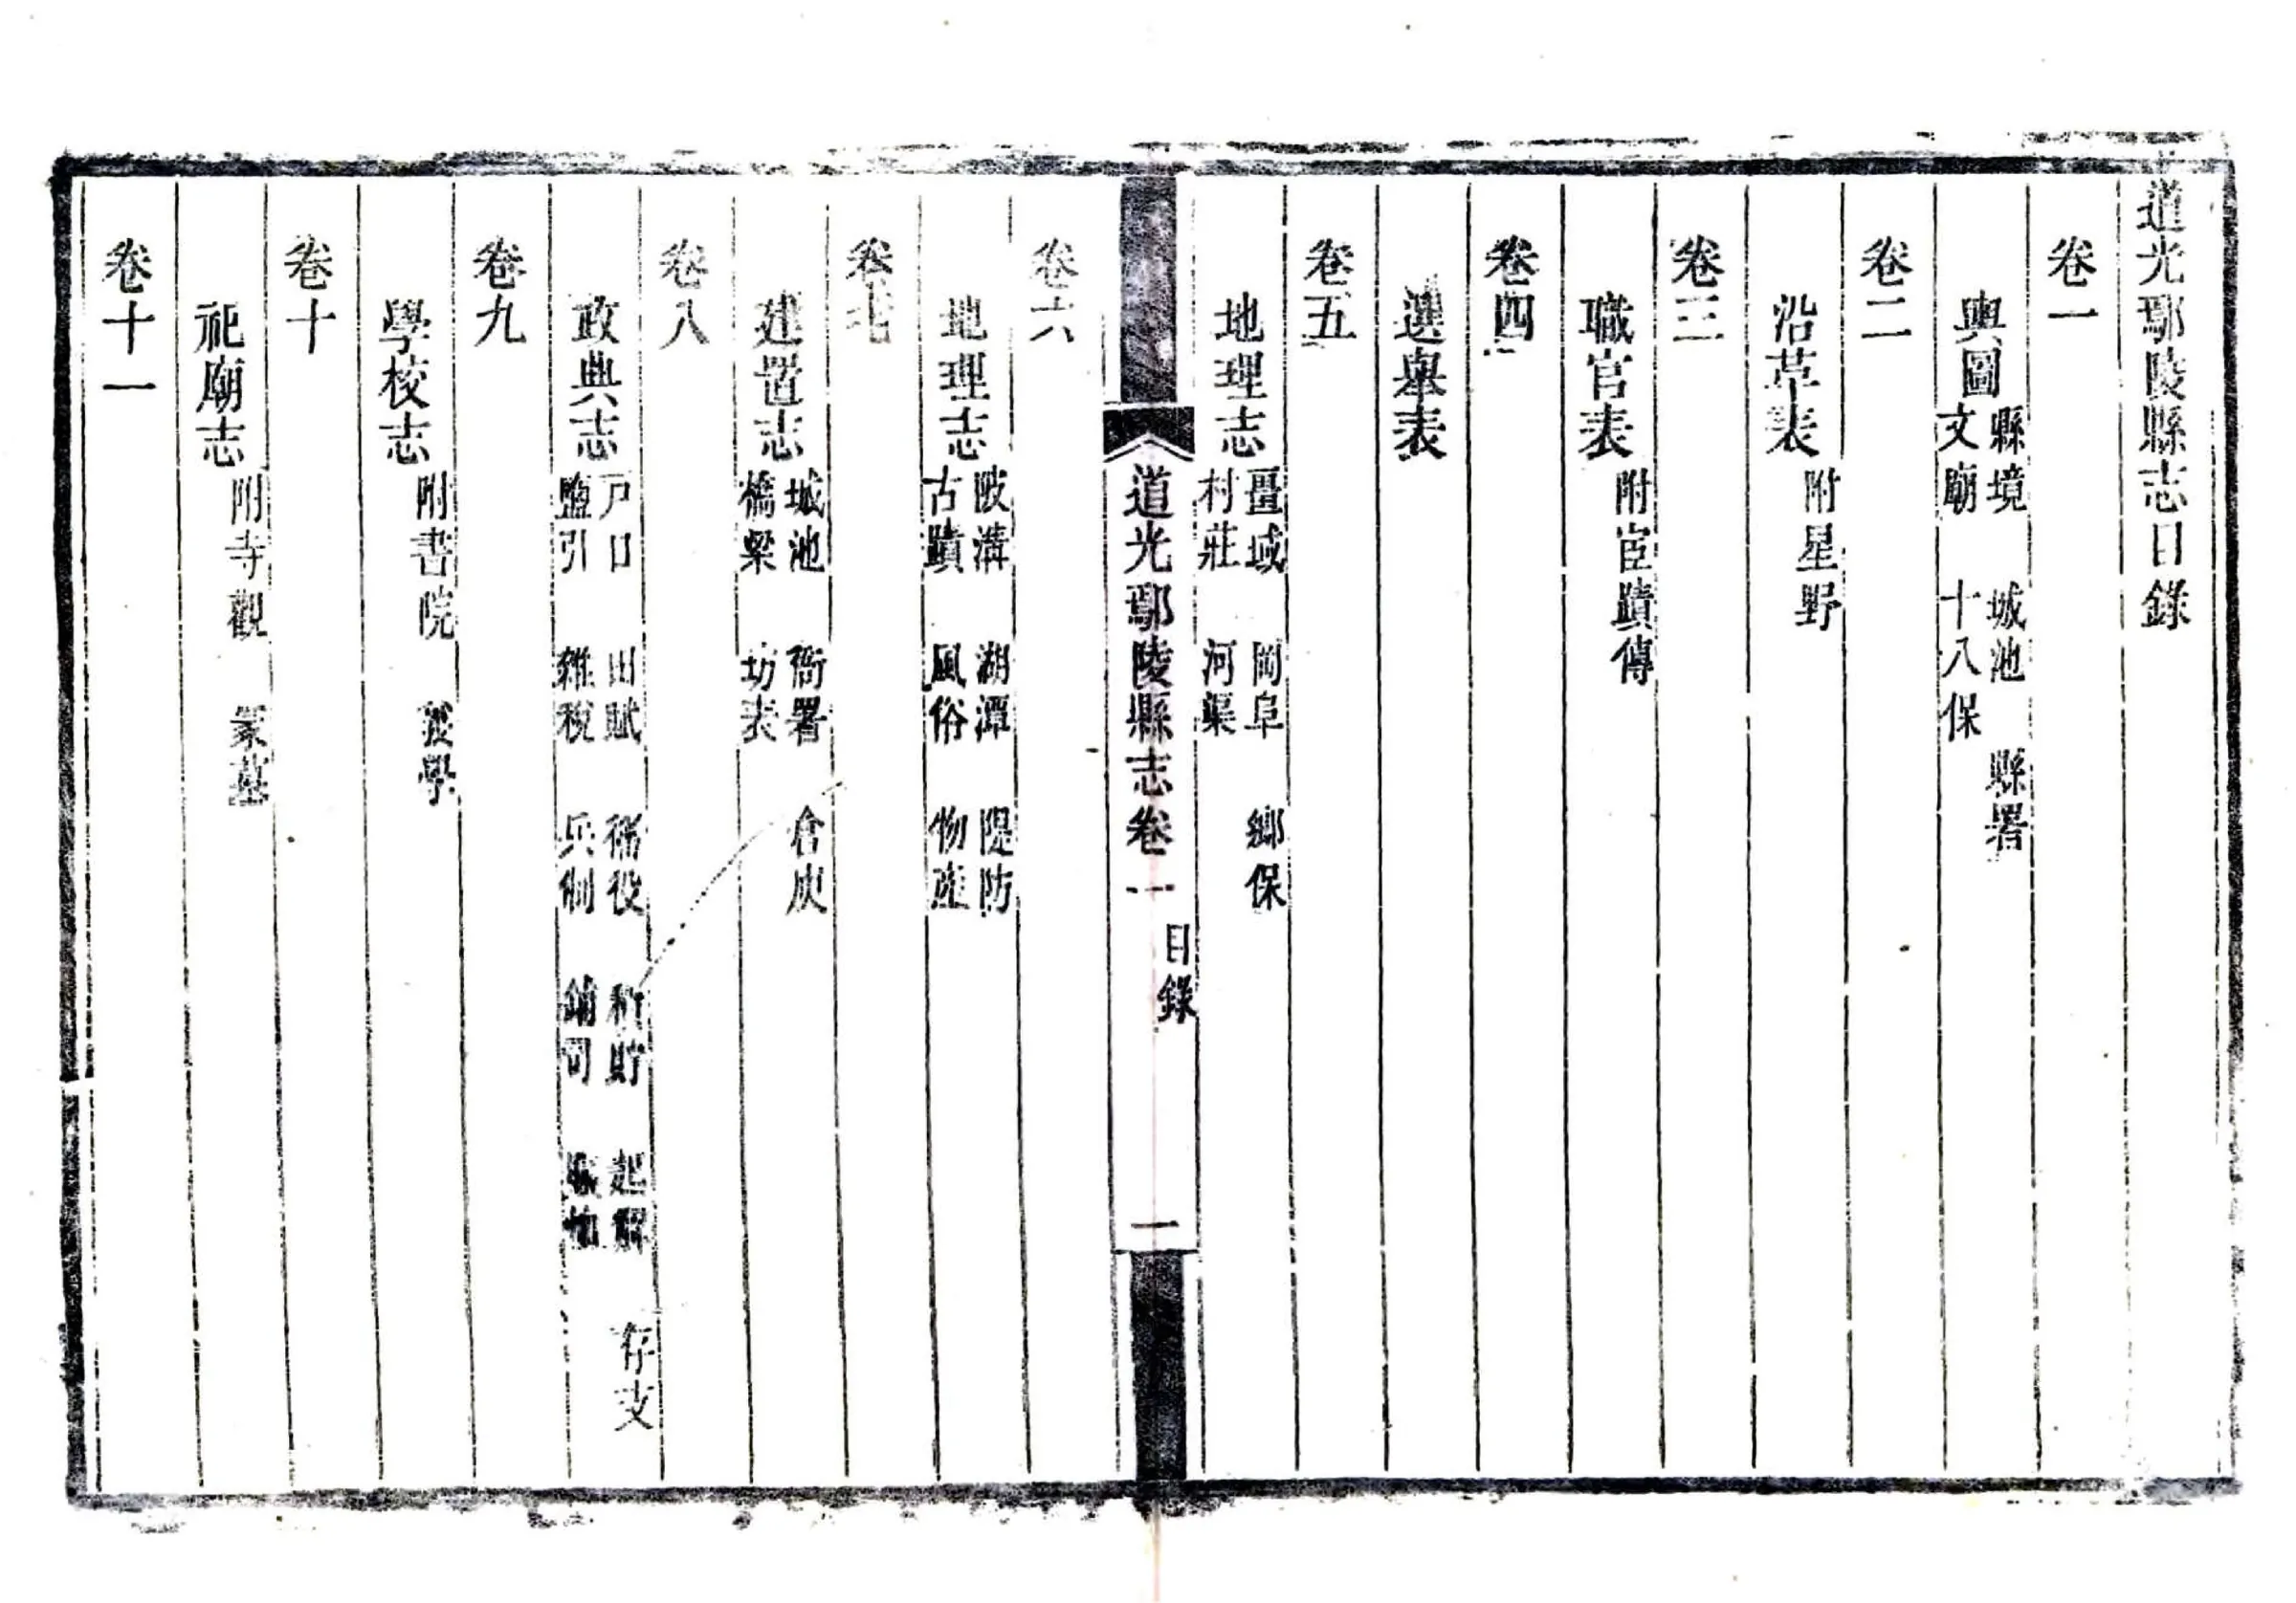 道光鄢陵縣志目錄
卷一
輿圖 縣境 城池 縣署
文廟 十八保
卷二
沿革表 附星野
卷三
職官表 附宦蹟傳
卷四
選舉表
卷五
地理志 疆域 岡阜 鄉保
村莊 河渠
道光鄢陵縣志卷一 目錄 一
卷六
地理志 陂溝 湖潭 隄防
古蹟 風俗 物產
卷七
建置志 城池 衙署 倉庾
橋梁 坊表
卷八
政典志 戶口 田賦 徭役 積貯 起解 存支
鹽引 雜稅 兵制 鋪司
卷九
學校志 附書院 義學
卷十
祀廟志 附寺觀 冢墓
卷十一